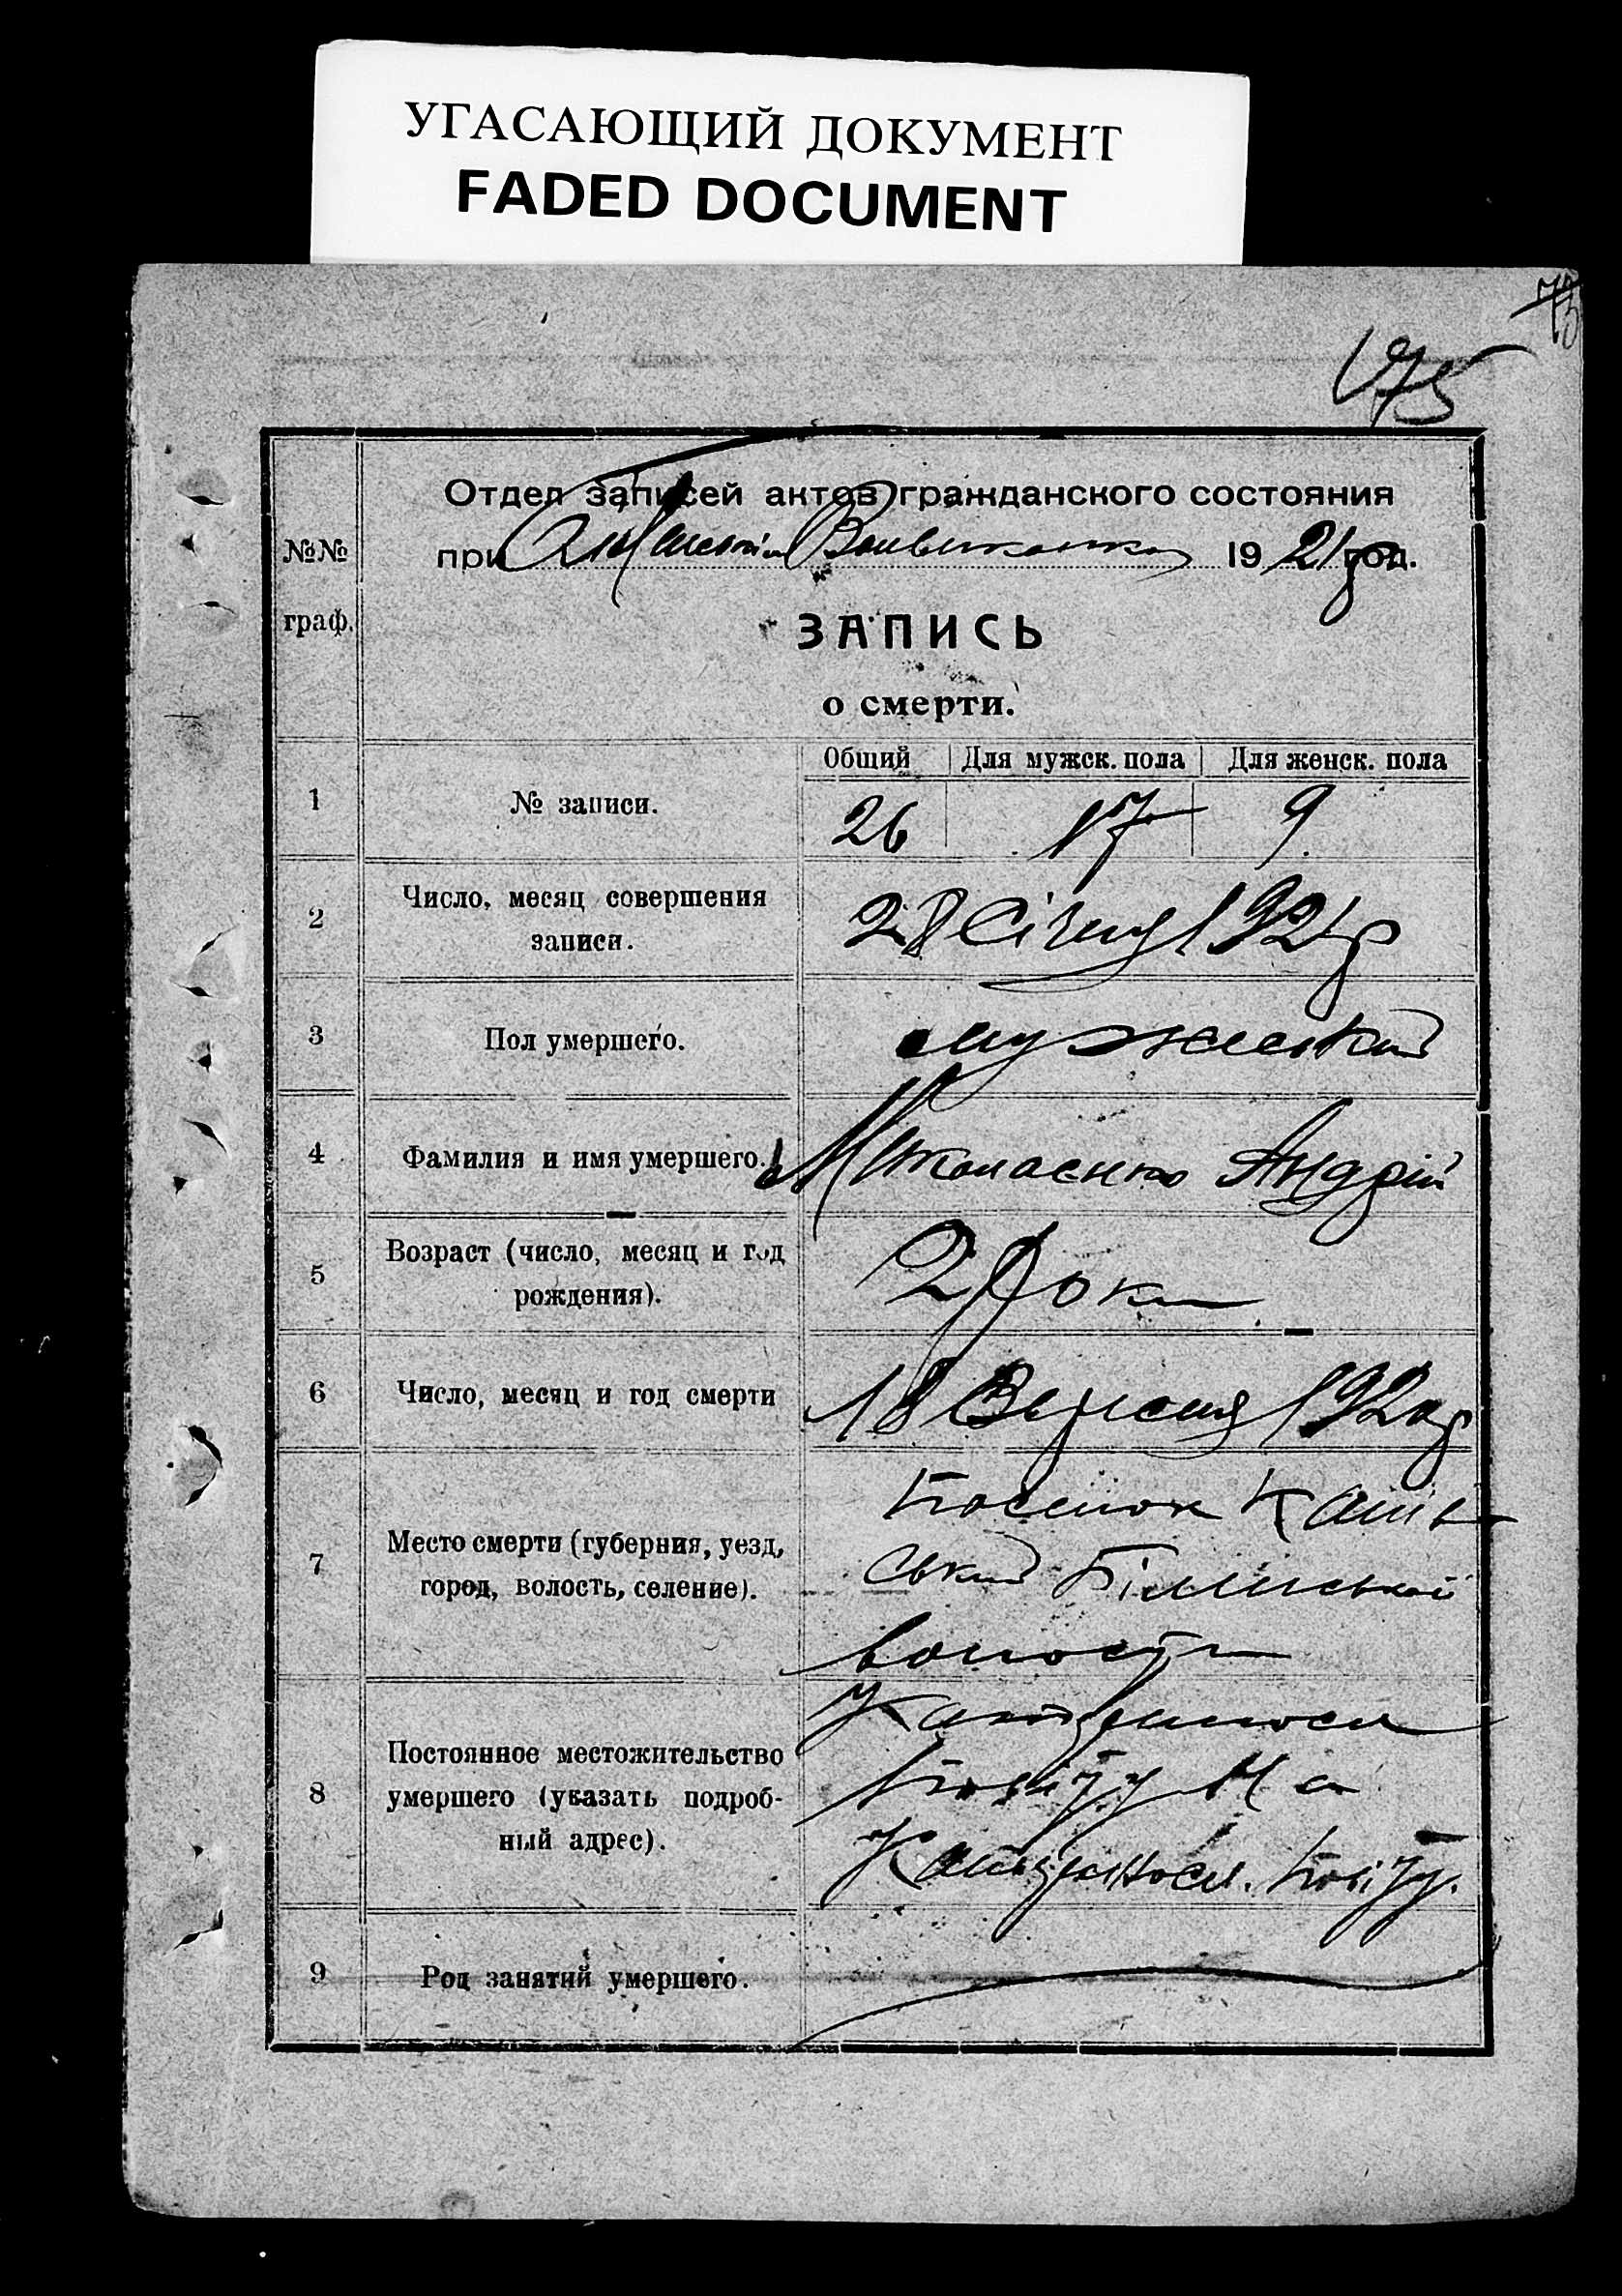 УГАСАЮЩИЙ ДОКУМЕНТ
FADED DOCUMENT
175
Отдел записей актов гражданского состояния
№№
граф.
при 1921 р год.
ЗАПИСЬ
о смерти.
Общий Для мужск. пола Для женск. пола
1 № записи. 26 17 9
2 Число, месяц совершения
записи.
28 Січня 1921 р
3 Пол умершего. мужеський
4 Фамилия и имя умершего. Миколаєнко Андрій
5 Возраст (число, месяц и год
рождения).
2 Роки
6 Число, месяц и год смерти 18 Вересня 1920 р
7 Место смерти (губерния, уезд,
город, волость, селение).
Посьолок
ський
волости
8 Постоянное местожительство
умершего (указать подроб-
ный адрес).
Повіту
Повіту.
9 Род занятий умершего.